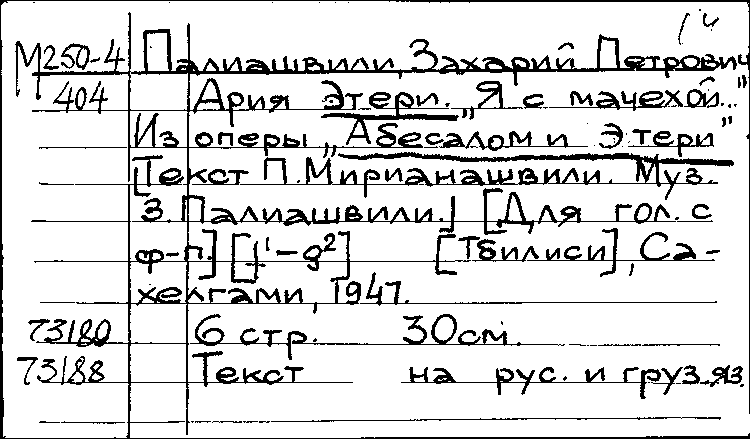 14
М250-4 Палиашвили, Захарий Петрович
404 Ария Этери. „Я с мачехой..."
Из оперы „Абесалом и Этери".
[Текст П. Мирианашвили. Муз.
З. Палиашвили.] [Для гол. с
ф-п.] [f¹-g²] [Тбилиси], Са-
хелгами, 1947.
73180 6 стр. 30см.
73188 Текст на рус. и груз. яз.